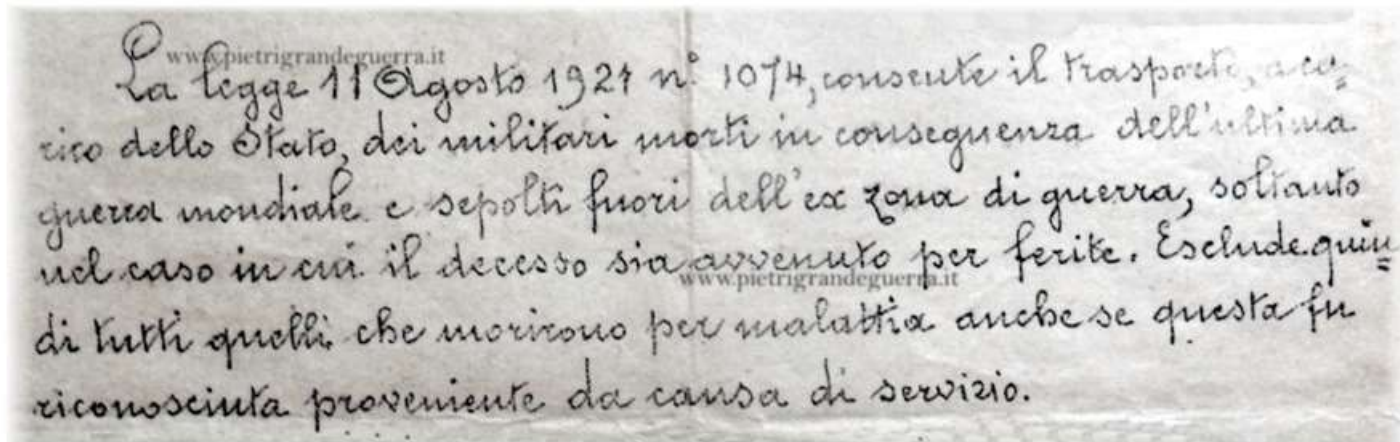 www.pietrigrandeguerra.it
La legge 11 Agosto 1921 n° 1074, consente il trasporto, a ca=
rico dello Stato, dei militari morti in conseguenza dell'ultima
guerra mondiale e sepolti fuori dell'ex zona di guerra, soltanto
nel caso in cui il decesso sia avvenuto per ferite. Esclude quin=
www.pietrigrandeguerra.it
di tutti quelli che morirono per malattia anche se questa fu
riconosciuta proveniente da causa di servizio.